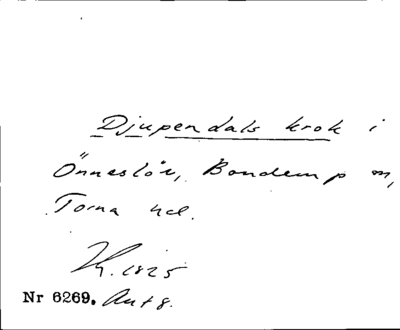 Djupendals krok i
Önneslöv, Bonderup sn,
Torna hd.
Hy. 1825
Nr 6269. Ant 8.